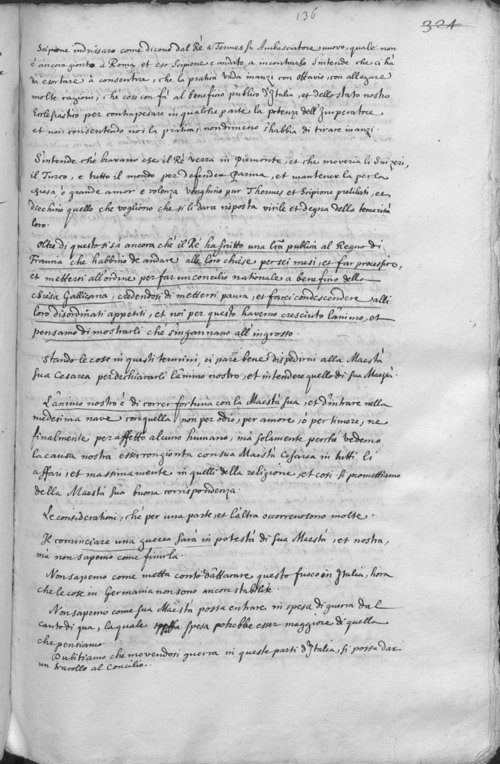 136
324
Scipione indrissaro come dicono dal Ré a Termes su Ambasciatore nuovo, quale non
è ancora gionto a Roma, et esso Scipione è andato a incontrarlo s'intende che ci hà
da esortare a consentire, che la pratica vada inanzi con ottavio, con allegare
molte ragioni, che così con fà al beneficio publico d'Italia, et dello stato nostro
Ecclesiastico per contrapesare in qualche parte la potenza dell'Imperatore
et non consentendo noi la pratica, nondimeno s'habbia di tirare inanzi.
S'intende che bravano che il Ré verrà in Piemonte, et che moverà li Suizeri,
il Turco, e tutto il mondo per defender Parma, et mantener la per la
chiesa, o grande amor e volenza venghino pur Thermes et Scipione prelibati, et
dicchino quello che vogliono che si li darà risposta virile et degna della temerità
loro.
Oltre di questo si sà ancora ché il Ré ha scritto una lřa publica al Regno di
Francia che habbino de andare alle loro chiese per sei mesi, et far processire,
et mettersi all'ordine per far un concilio nationale a beneficio della
chiesa Gallicana, credendosi di metterci paura, et farci condescendere alli
loro disordinati appetiti, et noi per questo havemo cresciuto l'animo, et
pensamo di mostrarli che s'ingannano all'ingrosso.
Stando le cose in questi termini, ci pare bene dispedirvi alla Maestà
sua Cesarea per dechiararli l'animo nostro, et intendere quello di sua Maestà.
L'animo nostro è di correr fortuna con la Maestà sua, et d'intrare nella
medesima nave con quella, non per odio, per amore, o per timore, ne
finalmente per affetto alcuno humano, mà solamente perché vedemo
la causa nostra esser congionta con sua Maestà Cesarea in tutti li
affari, et massimamente in quelli della religione, et così si promettiamo
della Maestà sua buona corrispondenza.
Le considerationi, ché per una parte, et l'altra occorrono sono molte.
Il cominciare una guerra sarà in potestà di sua Maestà, et nostra,
mà non sapemo come finirla.
Non sapemo come metta conto d'attaccare questo fuoco in Italia, hora
che le cose in Germania non sono ancora stabilite.
Non sapemo come sua Maestà possa entrare in spesa di guerra dal
canto di qua, la quale spesa potrebbe esser maggiore di quella
che pensiamo.
Dubitiamo che movendosi guerra in queste parti d'Italia, si possa dar
un tracollo al Concilio.